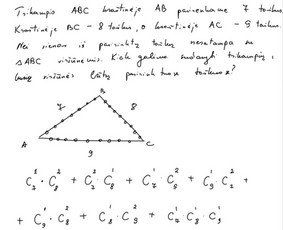 Trikampio ABC kraštinėje AB pažymėkime 7 taškus.
Kraštinėje BC - 8 taškus, o kraštinėje AC - 9 taškus.
Nei vienas iš pažymėtų taškų nesutampa su
△ABC viršūnėmis. Kiek galima sudaryti trikampių,
kurių viršūnės būtų pažymėtuose taškuose?
B
7 8
A C
9
C₇¹ · C₈² + C₇² · C₈¹ + C₇¹ · C₉² + C₉¹ C₇² +
+ C₉¹ · C₈² + C₈¹ · C₉² + C₇¹ · C₈¹ · C₉¹